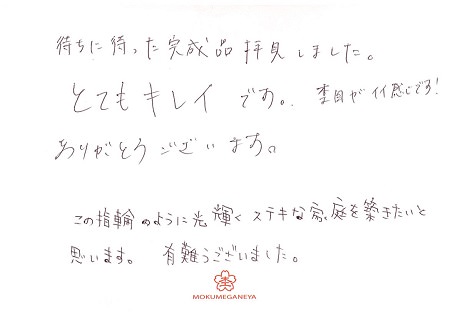 待ちに待った完成品拝見しました。
とてもキレイです。杢目がイイ感じです!
ありがとうございます。
この指輪のように光輝くステキな家庭を築きたいと
思います。 有難うございました。
杢
MOKUMEGANEYA